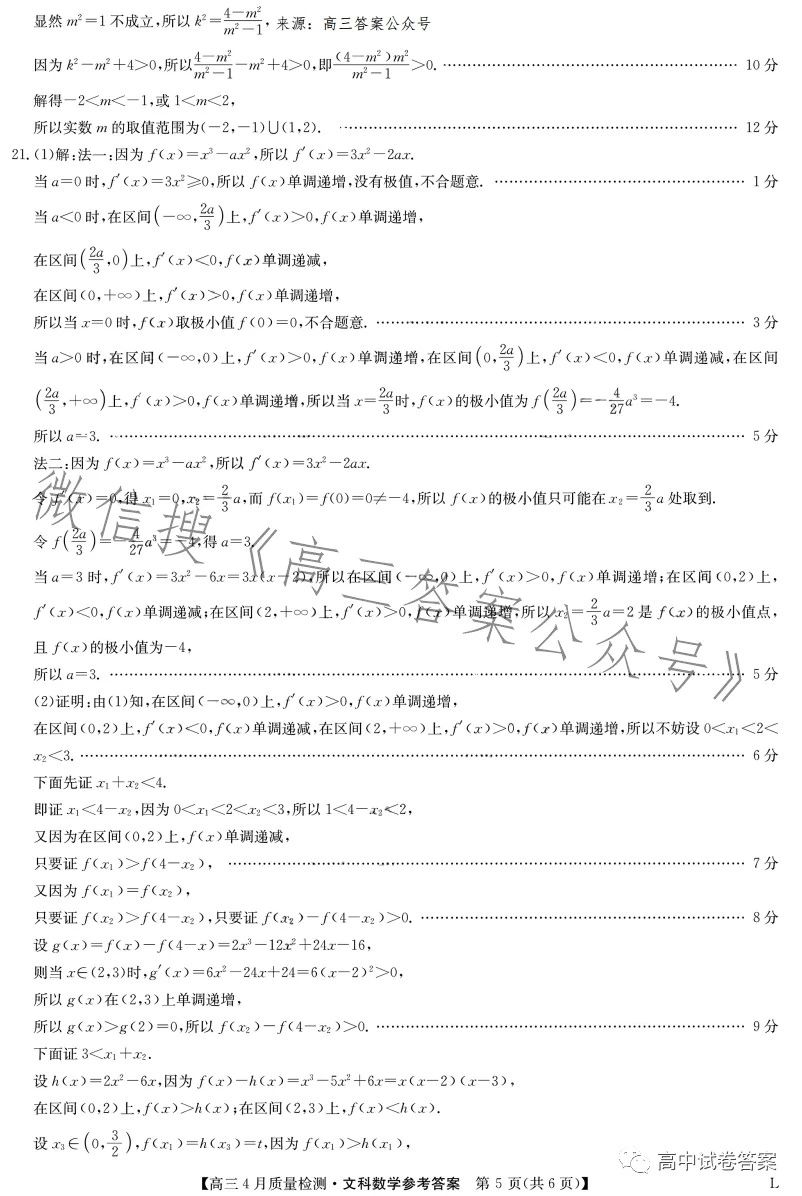 显然 m²=1 不成立,所以 k²=(4-m²)/(m²-1), 来源：高三答案公众号
因为 k²-m²+4>0,所以(4-m²)/(m²-1)-m²+4>0,即(4-m²)m²/(m²-1)>0. …… 10 分
解得-2<m<-1,或 1<m<2,
所以实数 m 的取值范围为(-2,-1)∪(1,2). …… 12 分
21.(1)解:法一:因为 f(x)=x³-ax²,所以 f′(x)=3x²-2ax.
当 a=0 时,f′(x)=3x²≥0,所以 f(x)单调递增,没有极值,不合题意. …… 1 分
当 a<0 时,在区间(-∞,2a/3)上,f′(x)>0,f(x)单调递增,
在区间(2a/3,0)上,f′(x)<0,f(x)单调递减,
在区间(0,+∞)上,f′(x)>0,f(x)单调递增,
所以当 x=0 时,f(x)取极小值 f(0)=0,不合题意. …… 3 分
当 a>0 时,在区间(-∞,0)上,f′(x)>0,f(x)单调递增,在区间(0,2a/3)上,f′(x)<0,f(x)单调递减,在区间
(2a/3,+∞)上,f′(x)>0,f(x)单调递增,所以当 x=2a/3时,f(x)的极小值为 f(2a/3)=-4/27a³=-4.
所以 a=3. …… 5 分
法二:因为 f(x)=x³-ax²,所以 f′(x)=3x²-2ax.
令 f′(x)=0,得 x₁=0,x₂=2/3a,而 f(x₁)=f(0)=0≠-4,所以 f(x)的极小值只可能在 x₂=2/3a 处取到.
令 f(2a/3)=-4/27a³=-4,得 a=3.
当 a=3 时,f′(x)=3x²-6x=3x(x-2),所以在区间(-∞,0)上,f′(x)>0,f(x)单调递增;在区间(0,2)上,
f′(x)<0,f(x)单调递减;在区间(2,+∞)上,f′(x)>0,f(x)单调递增;所以 x₂=2/3a=2 是 f(x)的极小值点,
且 f(x)的极小值为-4,
所以 a=3. …… 5 分
微信搜《高三答案公众号》
(2)证明:由(1)知,在区间(-∞,0)上,f′(x)>0,f(x)单调递增,
在区间(0,2)上,f′(x)<0,f(x)单调递减,在区间(2,+∞)上,f′(x)>0,f(x)单调递增,所以不妨设 0<x₁<2<
x₂<3. …… 6 分
下面先证 x₁+x₂<4.
即证 x₁<4-x₂,因为 0<x₁<2<x₂<3,所以 1<4-x₂<2,
又因为在区间(0,2)上,f(x)单调递减,
只要证 f(x₁)>f(4-x₂), …… 7 分
又因为 f(x₁)=f(x₂),
只要证 f(x₂)>f(4-x₂),只要证 f(x₂)-f(4-x₂)>0. …… 8 分
设 g(x)=f(x)-f(4-x)=2x³-12x²+24x-16,
则当 x∈(2,3)时,g′(x)=6x²-24x+24=6(x-2)²>0,
所以 g(x)在(2,3)上单调递增,
所以 g(x)>g(2)=0,所以 f(x₂)-f(4-x₂)>0. …… 9 分
下面证 3<x₁+x₂.
设 h(x)=2x²-6x,因为 f(x)-h(x)=x³-5x²+6x=x(x-2)(x-3),
在区间(0,2)上,f(x)>h(x);在区间(2,3)上,f(x)<h(x).
设 x₃∈(0,3/2),f(x₁)=h(x₃)=t,因为 f(x₁)>h(x₁),
高中试卷答案
【高三 4 月质量检测·文科数学参考答案 第 5 页(共 6 页)】 L